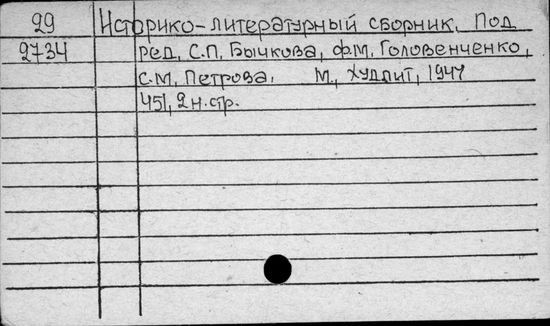 29 Историко-литературный сборник. Под
2734 ред. С.П. Бычкова, Ф.М. Головенченко,
С.М. Петрова. М., Худлит, 1947
451, 2 н. стр.